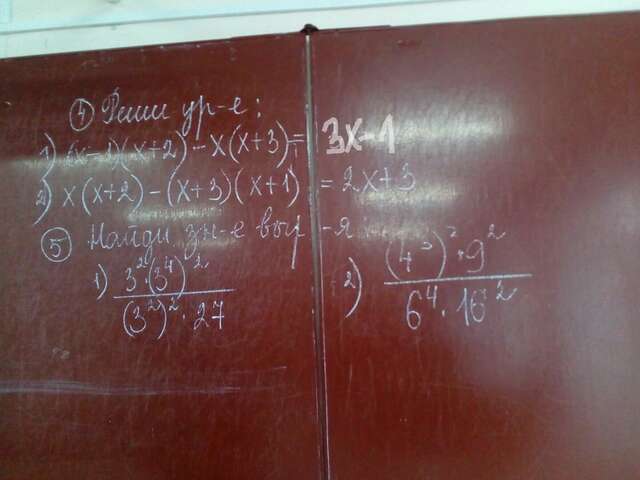 ④ Реши ур-е:
1) (x-1)(x+2) - x(x+3) = 3x-1
2) x(x+2) - (x+3)(x+1) = 2x+3
⑤ Найди зн-е выр-я
1) \frac{3^2 \cdot (3^4)^2}{(3^2)^2 \cdot 27} 2) \frac{(4^3)^2 \cdot 9^2}{6^4 \cdot 16^2}